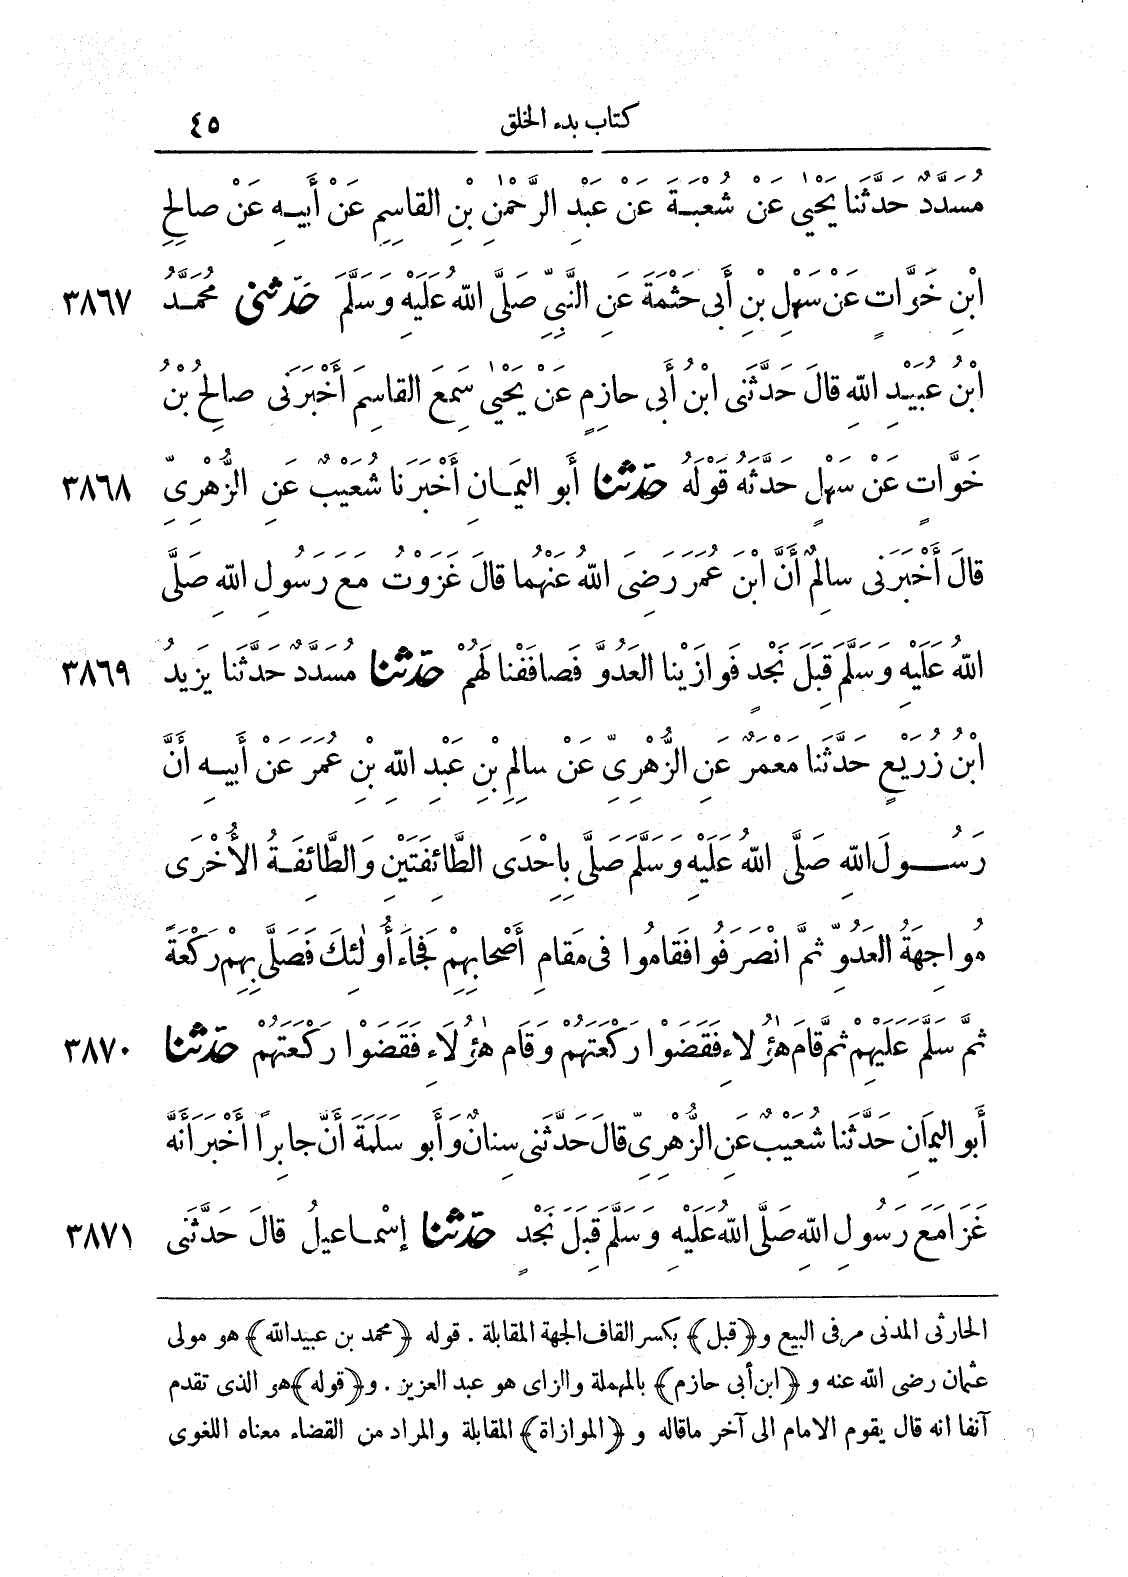 كتاب بدء الخلق ٤٥
مُسَدَّدٌ حَدَّثَنا يَحْيٰى عَنْ شُعْبَـةَ عَنْ عَبْدِ الرَّحْمٰنِ بْنِ القاسِمِ عَنْ أَبيـهِ عَنْ صالِحِ
ابْنِ خَوَّاتٍ عَنْ سَهْلِ بْنِ أَبى حَثْمَةَ عَنِ النَّبِىِّ صَلَّى اللهُ عَلَيْهِ وَسَلَّمَ حَدَّثَنى مُحَمَّـدُ ٣٨٦٧
ابْنُ عُبَيْـدِ اللهِ قالَ حَدَّثَنى ابْنُ أَبى حازِمٍ عَنْ يَحْيٰى سَمِعَ القاسِمَ أَخْبَرَنى صالِحُ بْنُ
خَوَّاتٍ عَنْ سَهْلٍ حَدَّثَهُ قَوْلَهُ حَدَّثَنا أَبو اليَمـانِ أَخْبَرَنا شُعَيْبٌ عَنِ الزُّهْرِىِّ ٣٨٦٨
قالَ أَخْبَرَنى سالِمٌ أَنَّ ابْنَ عُمَرَ رَضِىَ اللهُ عَنْهُما قالَ غَزَوْتُ مَعَ رَسُولِ اللهِ صَلَّى
اللهُ عَلَيْهِ وَسَلَّمَ قِبَلَ نَجْدٍ فَوازَيْنا العَدُوَّ فَصافَفْنا لَهُمْ حَدَّثَنا مُسَدَّدٌ حَدَّثَنا يَزيدُ ٣٨٦٩
ابْنُ زُرَيْعٍ حَدَّثَنا مَعْمَرٌ عَنِ الزُّهْرِىِّ عَنْ سالِمِ بْنِ عَبْدِ اللهِ بْنِ عُمَرَ عَنْ أَبيـهِ أَنَّ
رَسُـولَ اللهِ صَلَّى اللهُ عَلَيْهِ وَسَلَّمَ صَلَّى بِاِحْدَى الطَّائِفَتَيْنِ وَالطَّائِفَـةُ الأُخْرَى
مُواجِهَةُ العَدُوِّ ثُمَّ انْصَرَفُوا فَقامُوا فى مَقامِ أَصْحابِهِمْ فَجاءَ أُولٰئِكَ فَصَلَّى بِهِمْ رَكْعَةً
ثُمَّ سَلَّمَ عَلَيْهِمْ ثُمَّ قامَ هٰؤُلاءِ فَقَضَوْا رَكْعَتَهُمْ وَقامَ هٰؤُلاءِ فَقَضَوْا رَكْعَتَهُمْ حَدَّثَنا ٣٨٧٠
أَبو اليمَانِ حَدَّثَنا شُعَيْبٌ عَنِ الزُّهْرِىِّ قالَ حَدَّثَنى سِنانٌ وَأَبو سَلَمَةَ أَنَّ جابِراً أَخْبَرَ أَنَّهُ
غَزَا مَعَ رَسُولِ اللهِ صَلَّى اللهُ عَلَيْهِ وَسَلَّمَ قِبَلَ نَجْدٍ حَدَّثَنا إِسْمـاعيلُ قالَ حَدَّثَنى ٣٨٧١
الحارثى المدنى مر فى البيع و﴿قبل﴾ بكسر القاف الجهة المقابلة . قوله ﴿محمد بن عبيدالله﴾ هو مولى
عثمان رضى الله عنه و ﴿ابن أبى حازم﴾ بالمهملة والزاى هو عبد العزيز . و﴿قوله﴾ هو الذى تقدم
آنفا انه قال يقوم الامام الى آخر ماقاله و ﴿الموازاة﴾ المقابلة والمراد من القضاء معناه اللغوى